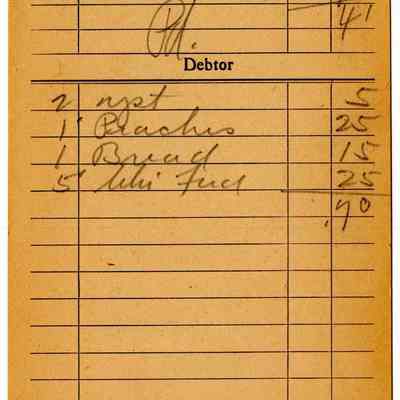 41
Pd.
Debtor
2 npt 5
1 Peaches 25
1 Bread 15
5 Chi Feed 25
.70